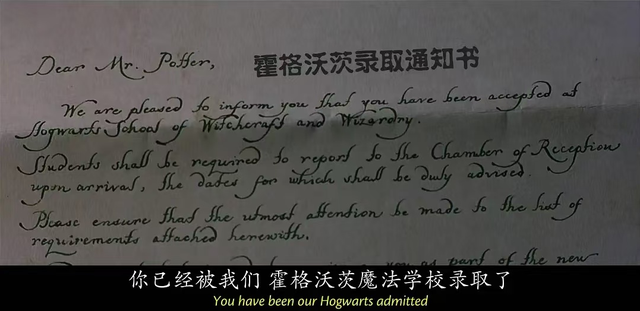 Dear Mr. Potter,
霍格沃茨录取通知书
We are pleased to inform you that you have been accepted at
Hogwarts School of Witchcraft and Wizardry.
Students shall be required to report to the Chamber of Reception
upon arrival, the dates for which shall be duly advised.
Please ensure that the utmost attention be made to the list of
requirements attached herewith.
you as part of the new
你已经被我们 霍格沃茨魔法学校录取了
You have been our Hogwarts admitted